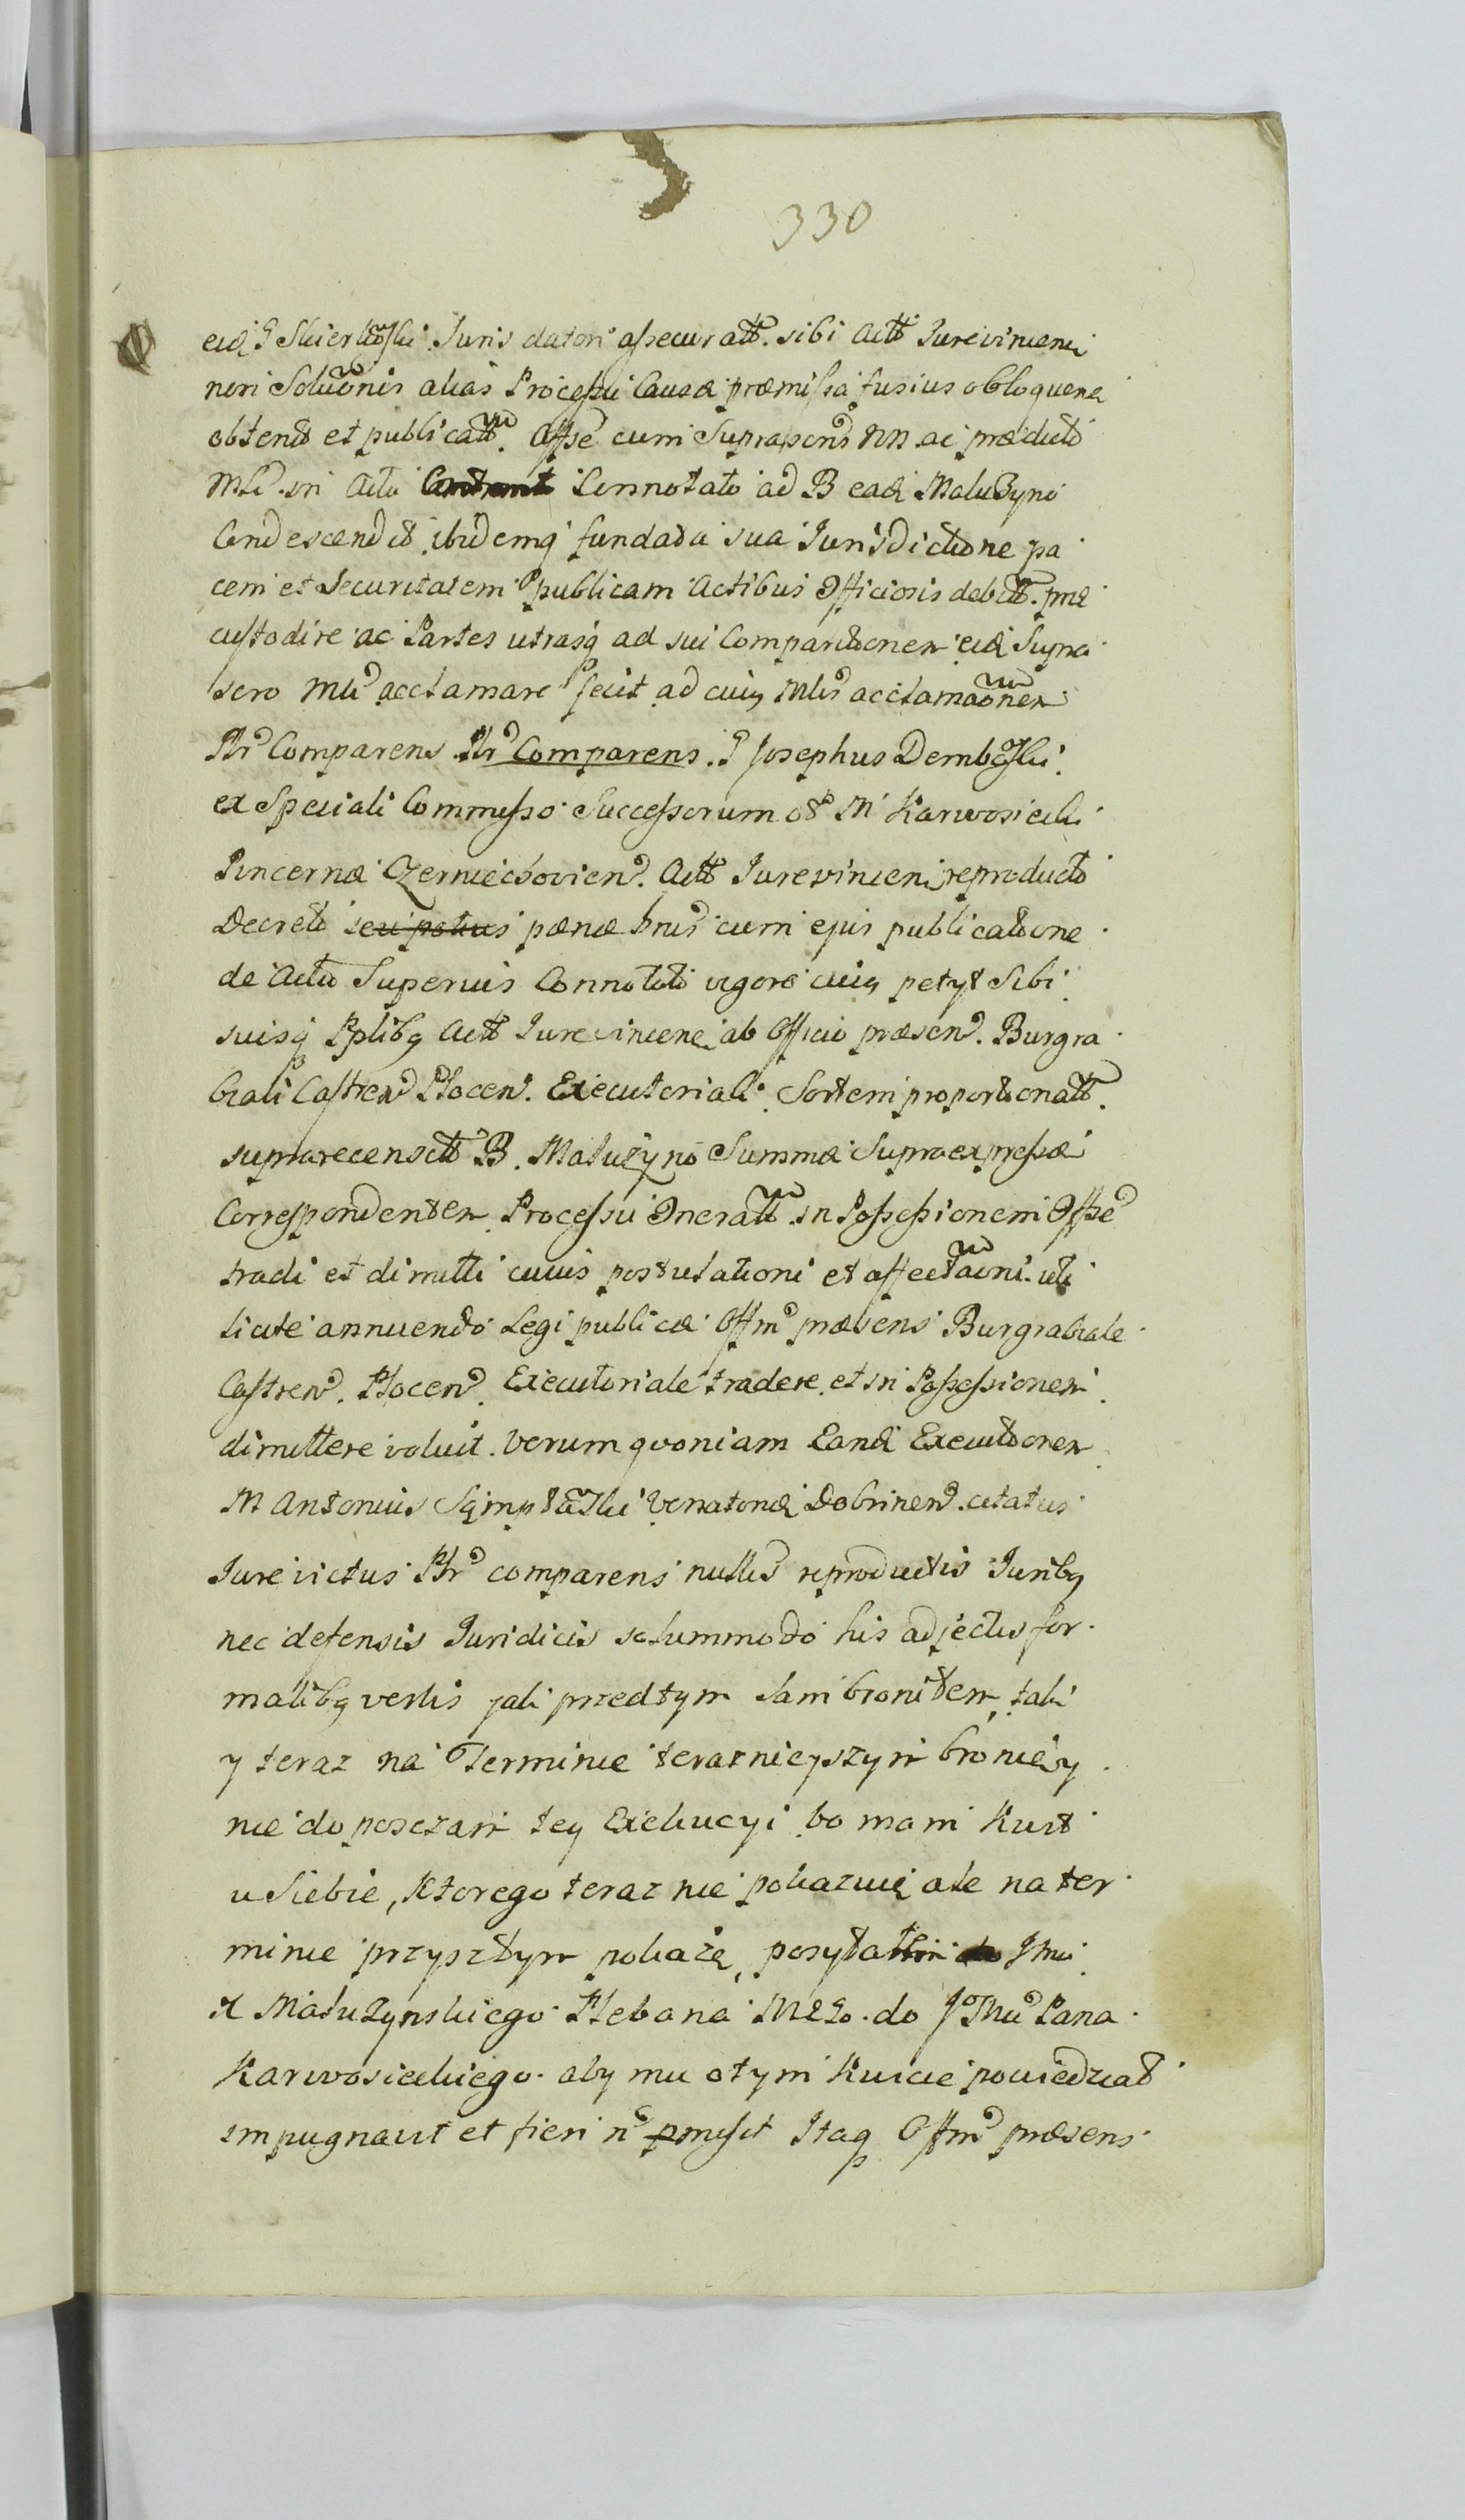 330
eid G Skierkoski Juris datori assecuratt. sibi Actt Jurevincenti
non Soluõnis alias Processu Causa præmissa fusius obloquenti
obtend et publicatt. Offse cum Suprascris NN ac prædicto
Mli in Actu Connotato ad B eadi Maluzyno
Condescendit, ibidemq fundata sua Jurisdictione pa
cem et Securitatem publicam Actibus Officiosis debitt. præ
custodire ac Partes utrasq ad sui Comparitionem eid Supra
scro Mli acclamare fecit ad cuiq Mlis acclamaõnem
Plr Comparens Plr Comparens. G Josephus Demboski
ex Speciali Commisso Successorum ol M Karwosiecki
Pincernæ Czerniechovien. Actt Jurevinceni, reproducto
Decreto seu potius pænæ bnis cum ejus publicatione
de Actu Superius Connotato vigore cuiq petyt Sibi
suisq Pplibq Actt Jurevinceni ab Officio præsen. Burgra
biali Castren Plocen. Executoriali. Sortem proportionatt.
suprarecensitt B. Maluzyno Summæ Supraexpressæ
Correspondentem Processu Oneratt. in Possessionem Offse
tradi et dimitti cuius postulationi et affectaõni uti
licite annuendo Legi publicæ Offm præsens Burgrabiale
Castren. Plocen. Executoriale tradere et in Possessionem
dimittere voluit. Verum quoniam Eand Executionem
M Antonius Venatorid Dobrinen. citatus
Jurevictus Plr comparens nullis reproductis Juribq
nec defensis Juridicis solummodo his adjectis for
malibq verbis jak przedtym sam bronilem, tak
y teraz na Terminie terazniejszym bronie y
nie doposczam tey Exekucyi bo mam Kwit
u Siebie, ktorego teraz nie pokazuię ale na ter
minie przyszłym pokaże, posyłałem Jmci
X Małuzynskiego Plebana do JMci Pana
Karwosieckiego aby mu otym Kwicie powiedział
impugnavit et fieri n pmisit Itaq Offm præsens